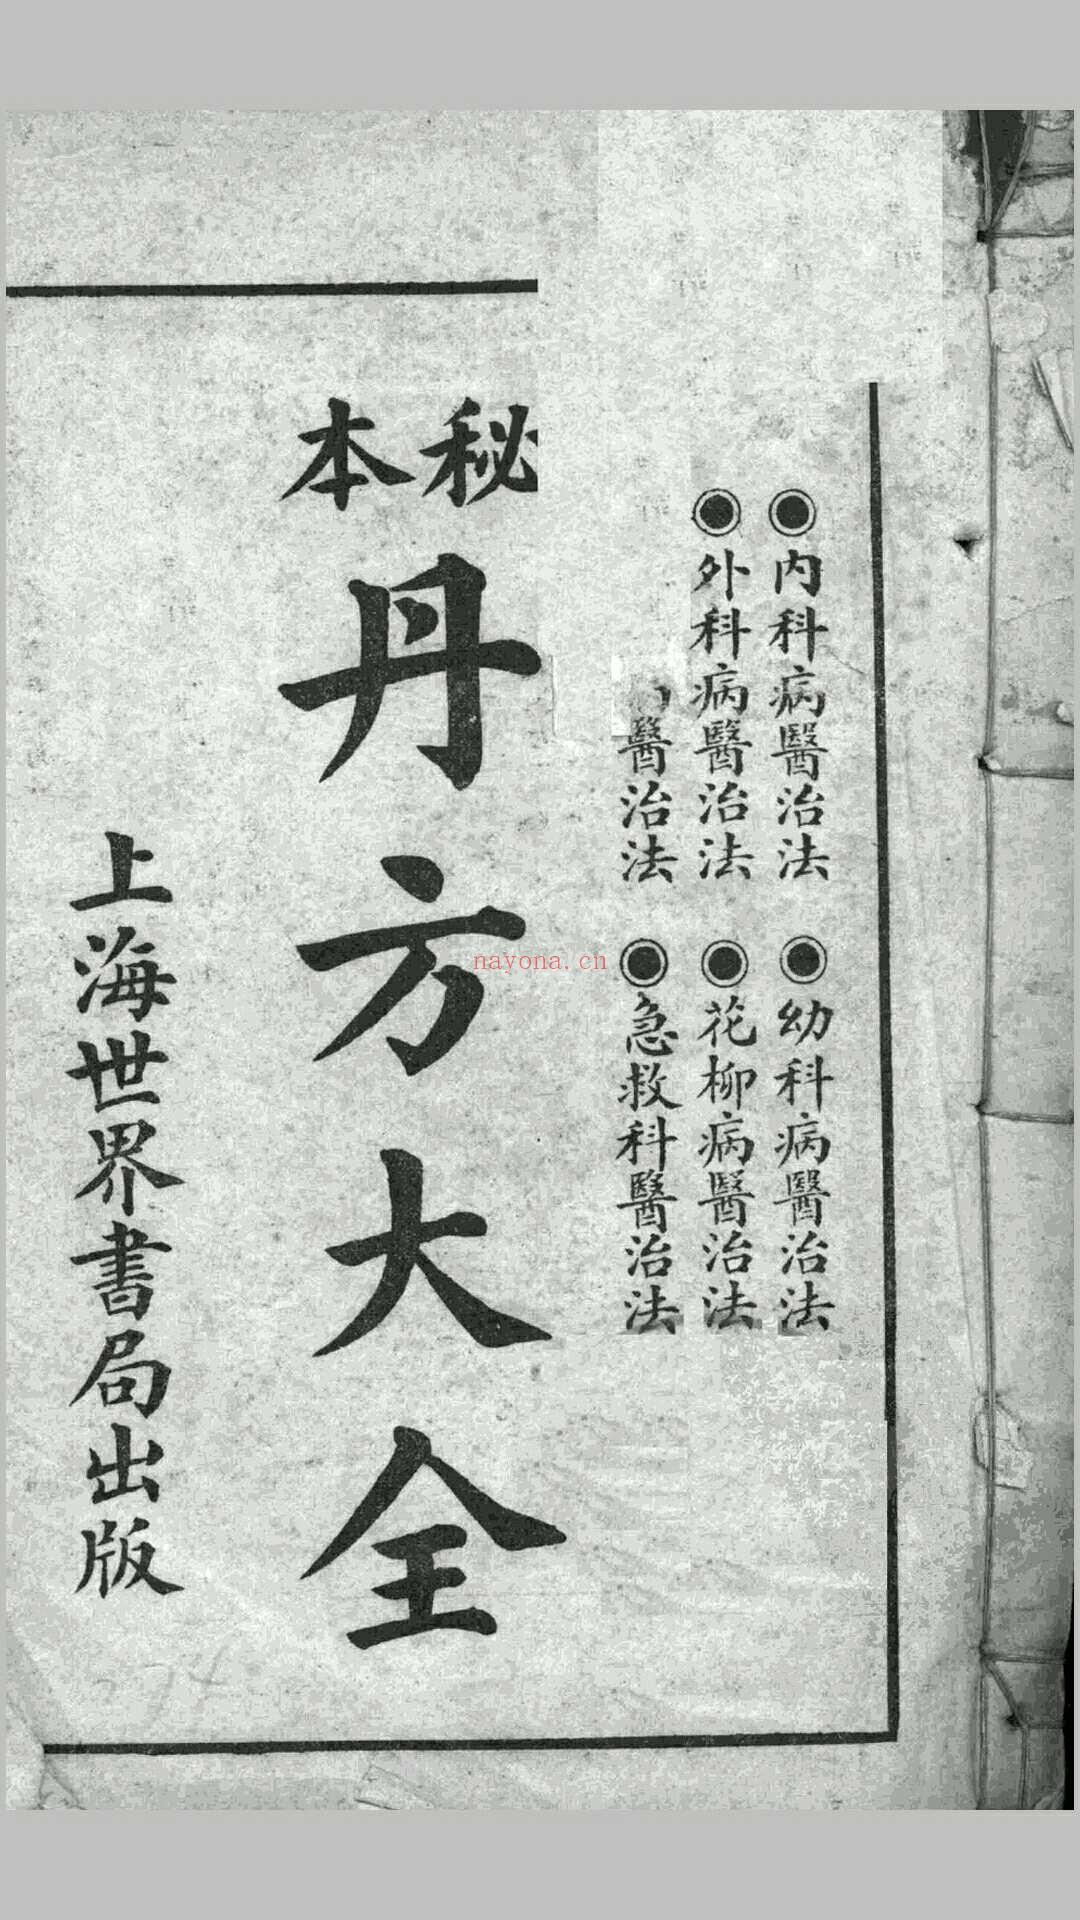 ◉内科病醫治法
◉幼科病醫治法
◉外科病醫治法
◉花柳病醫治法
醫治法
◉急救科醫治法
秘本
丹方大全
上海世界書局出版
nayona.cn